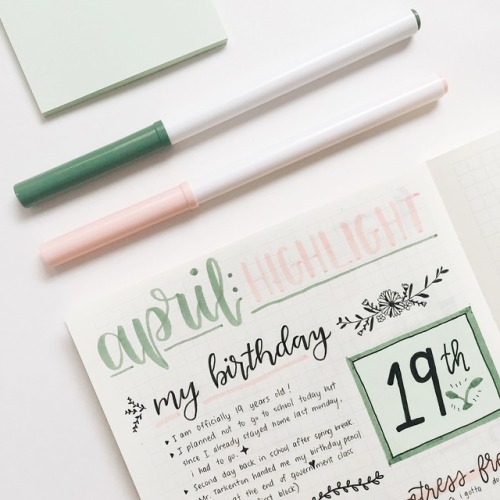 april: HIGHLIGHT
my birthday
19th
I am officially 19 years old!
I planned not to go to school today but
since I already stayed home last monday,
I had to go.
second day back in school after spring break
Mr. Tarkenton handed me my birthday pencil
at the end of government class
block)
stress-fre
gotta